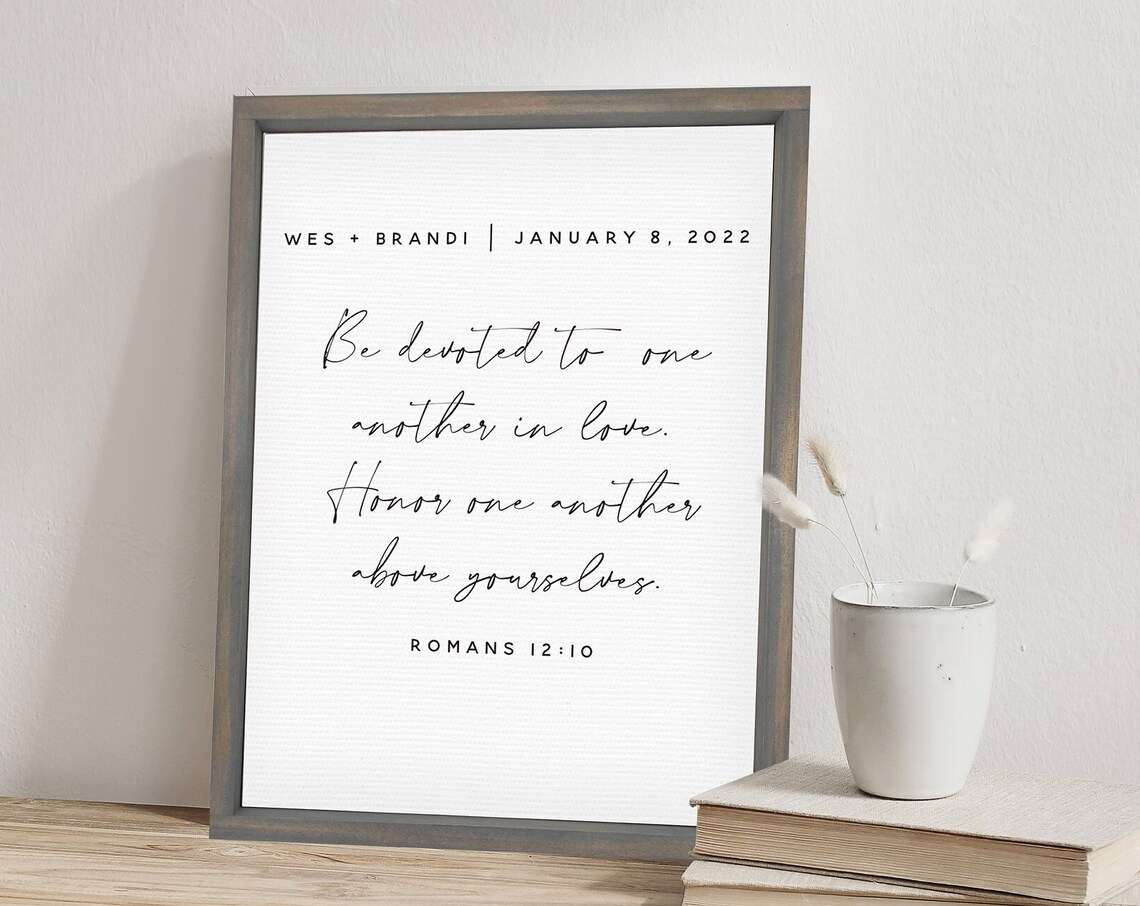 WES + BRANDI | JANUARY 8, 2022
Be devoted to one
another in love.
Honor one another
above yourselves.
ROMANS 12:10